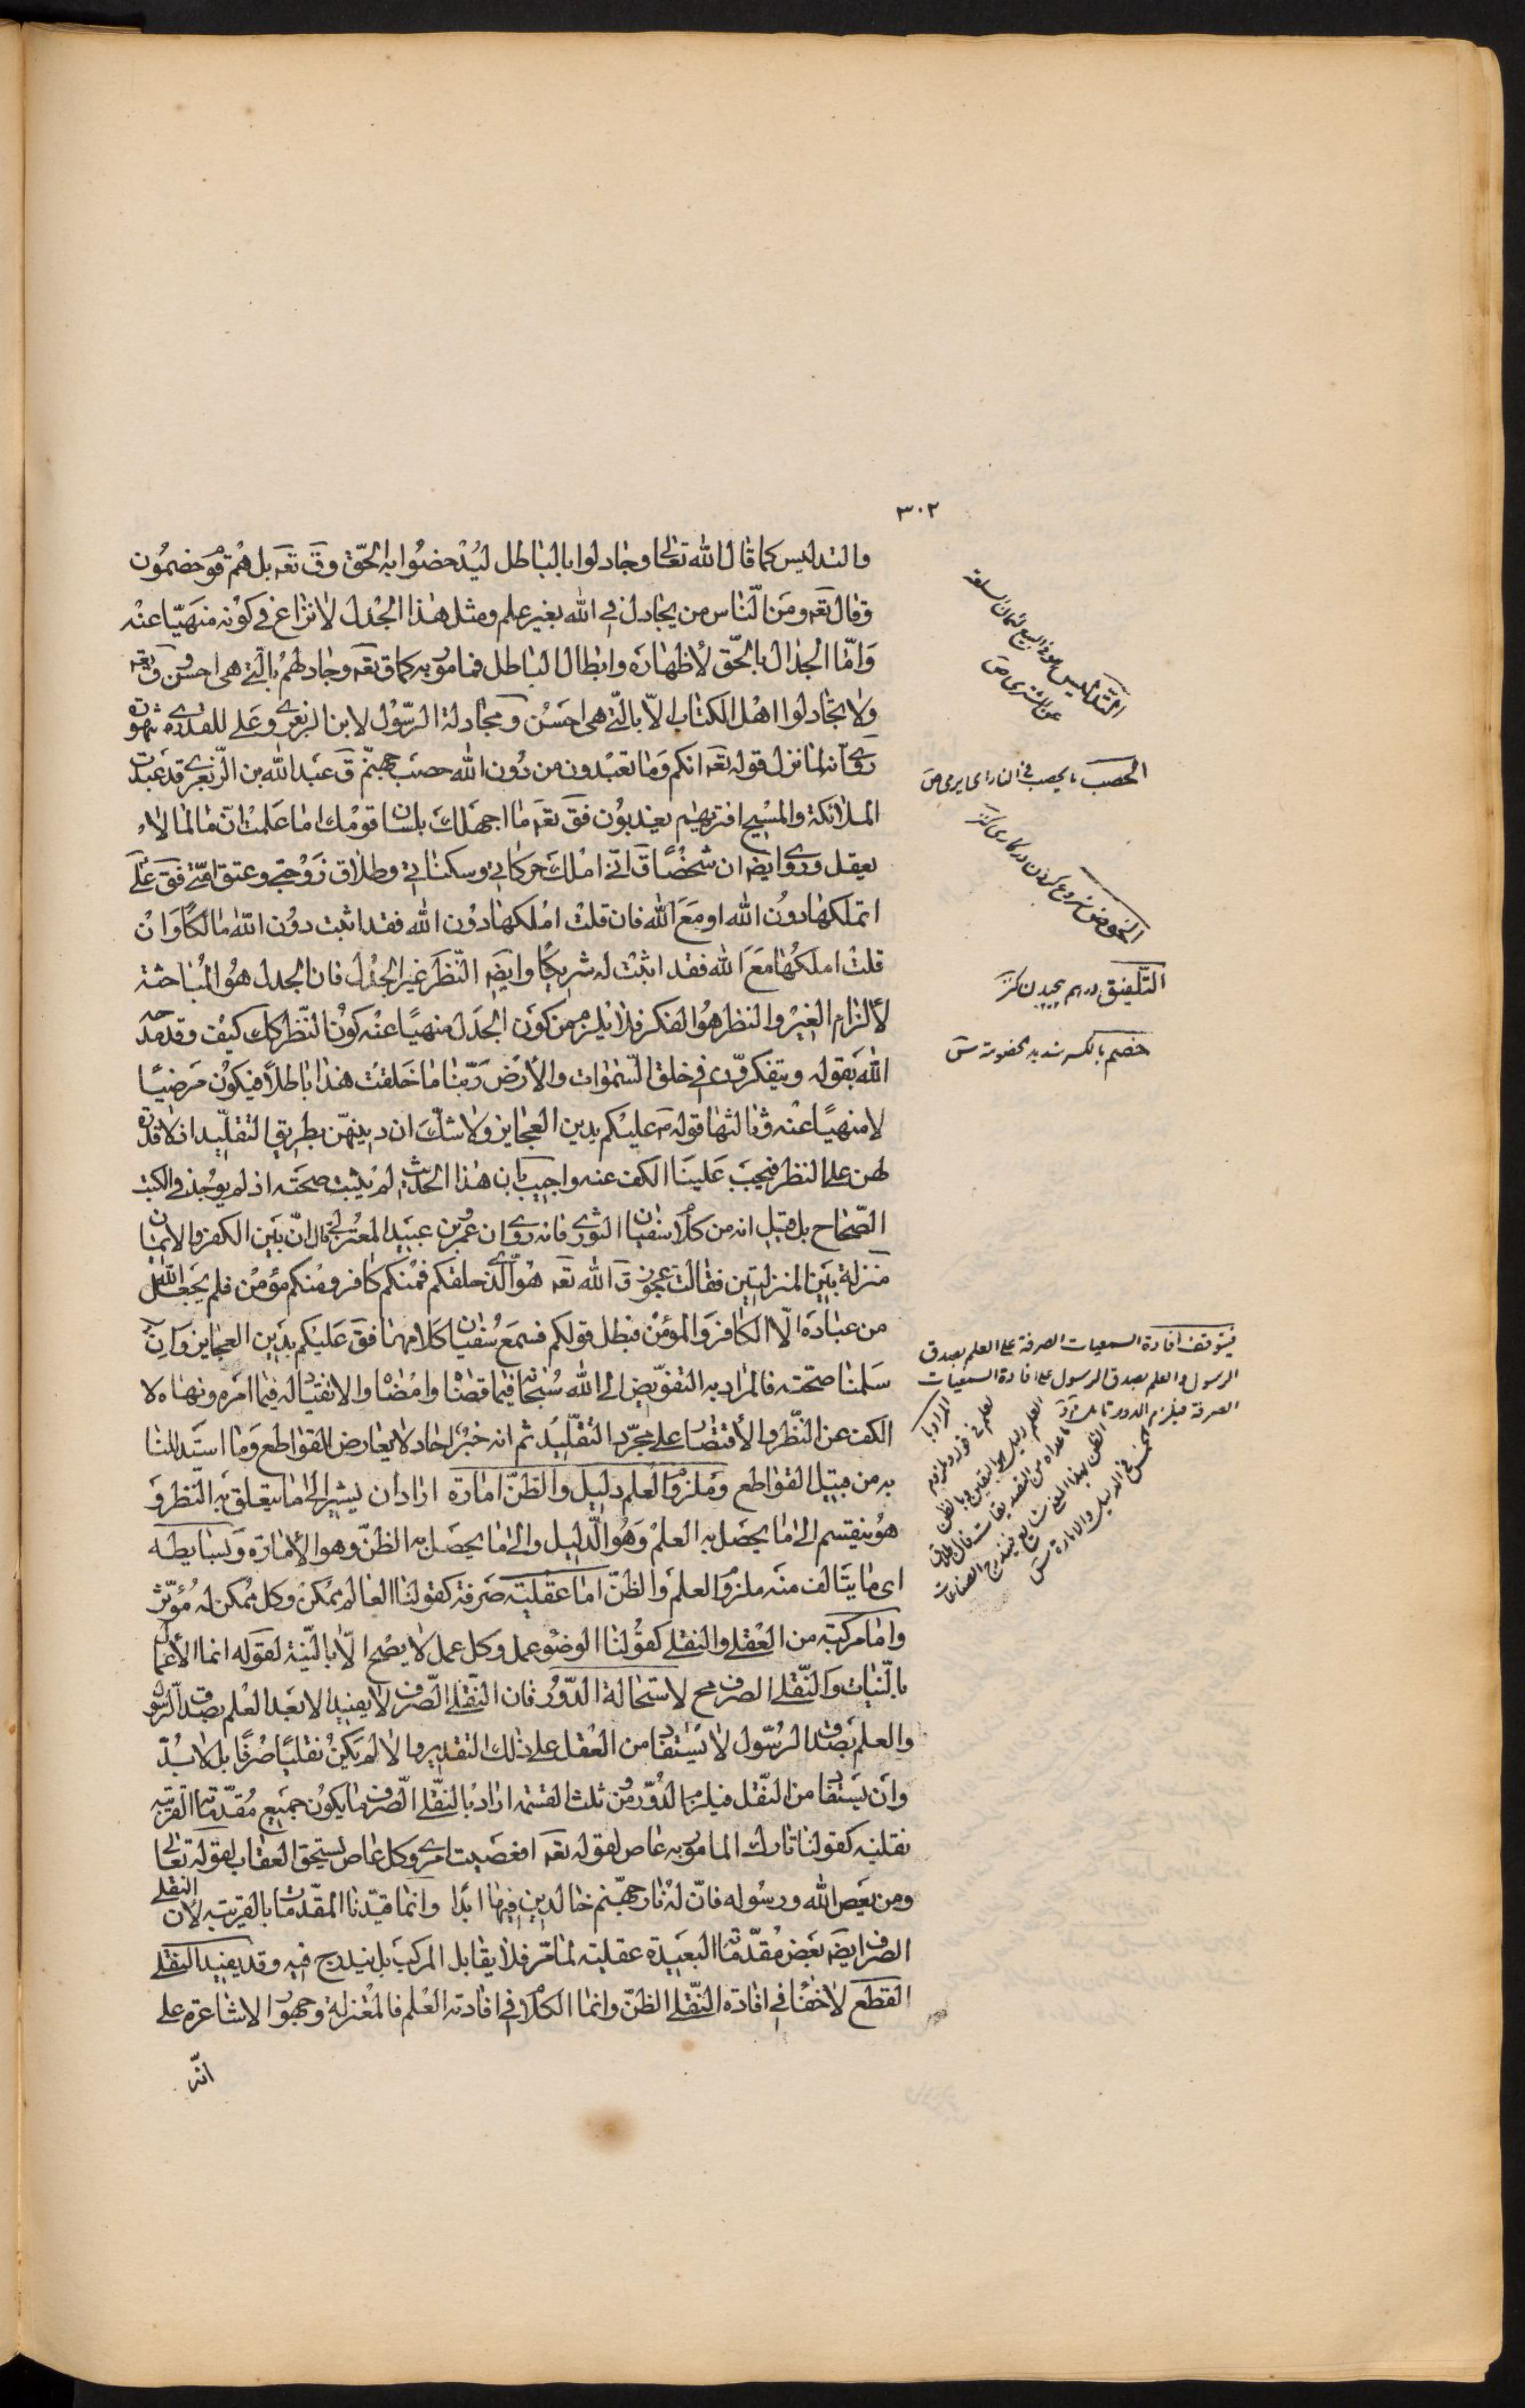 ٣٠٢
والتدليس كما قال الله تعالى وجادلوا بالباطل ليدحضوا به الحق وق تعه بل هم قوم خصمون
وقال تعه ومن الناس من يجادل في الله بغير علم ومثل هذا الجدل لا نزاع في كونه منهيا عنه
واما الجدال بالحق لاظهاره وابطال الباطل فمامور به كما ق تعه وجادلهم بالتي هي احسن وق تعه
ولا تجادلوا اهل الكتاب الا بالتي هي احسن ومجادلة الرسول لابن الزبعرى وعلى للقدرى مشهورة
روى انه لما نزل قوله تعه انكم وما تعبدون من دون الله حصب جهنم ق عبد الله بن الزبعرى قد عبدت
الملائكة والمسيح افتريهم يعذبون فق تعه ما اجهلك بلسان قومك اما علمت ان ما لما لا
يعقل وروى ايضه ان شخصا ق انى املك حركاتي وسكناتي وطلاق زوجتي وعتق امتي فق على
اتملكها دون الله او مع الله فان قلت املكها دون الله فقد اثبت دون الله مالكا وان
قلت املكها مع الله فقد اثبت له شريكا وايضه النظر غير الجدل فان الجدل هو المباحثة
لالزام الغير والنظر هو الفكر فلا يلزم من كون الجدل منهيا عنه كون النظر كك كيف وقد مدحه
الله بقوله ويتفكرون في خلق السموات والارض ربنا ما خلقت هذا باطلا فيكون مرضيا
لا منهيا عنه وثالثها قوله عم عليكم بدين العجايز ولا شك ان دينهن بطريق التقليد اذ لا قدرة
لهن على النظر فيجب علينا الكف عنه واجيب بان هذا الحديث لم يثبت صحته اذ لم يوجد في الكتب
الصحاح بل قيل انه من كلام سفيان الثوري فانه روى ان عمرو بن عبيد المعتزلي قال ان بين الكفر والايمان
منزلة بين المنزلتين فقالت عجوز ق الله تعه هو الذى خلقكم فمنكم كافر ومنكم مؤمن فلم يجعل الله
من عباده الا الكافر والمؤمن فبطل قولكم فسمع سفيان كلامها فق عليكم بدين العجايز وان
سلمنا صحته فالمراد به التفويض الى الله سبحانه فيما قضاه وامضاه والانقياد له فيما امره ونهاه لا
الكف عن النظر والاقتصار على مجرد التقليد ثم انه خبر احاد لا يعارض القواطع وما استدللنا
به من قبيل القواطع وملزوم العلم دليل والظن امارة اراد ان يشير الى ما يتعلق به النظر و
هو ينقسم الى ما يحصل به العلم وهو الدليل والى ما يحصل به الظن وهو الامارة وبسايطه
اى ما يتالف منه ملزوم العلم والظن اما عقلية صرفة كقولنا العالم ممكن وكل ممكن له مؤثر
واما مركبة من العقلي والنقلي كقولنا الوضوء عمل وكل عمل لا يصح الا بالنية لقوله انما الاعمال
بالنيات والنقلي الصرف مح لاستحالة الدور فان النقلي الصرف لا يفيد الا بعد العلم بصدق الرسول
والعلم بصدق الرسول لا يستفاد من العقل على ذلك التقدير والا لم يكن نقليا صرفا بل لا بد
وان يستفاد من النقل فيلزم الدور ومن ثلث القسمة اراد بالنقلي الصرف ما يكون جميع مقدماته القريبة
نقلية كقولنا تارك المامور به عاص لقوله تعه افعصيت امرى وكل عاص يستحق العقاب لقوله تعالى
ومن يعص الله ورسوله فان له نار جهنم خالدين فيها ابدا وانما قيدنا المقدمات بالقريبة لان النقلي
الصرف ايضه بعض مقدماته البعيدة عقلية لما مر فلا يقابل المركب بل يندرج فيه وقد يفيد النقلي
القطع لا خفاء في افادة النقلي الظن وانما الكلام في افادته العلم فالمعتزلة وجمهور الاشاعرة على
انه
التدليس في البيع كتمان السلعة
عن المشترى ص
الحصب ما يحصب في النار اى يرمى ص
الخوض شروع كردن در كارى كنز
التلفيق در هم پچيدن كنز
خصم بالكسر شديد الخصومة س
فيتوقف افادة السمعيات الصرفة على العلم بصدق
الرسول والعلم بصدق الرسول على افادة السمعيات
الصرفة فيلزم الدور